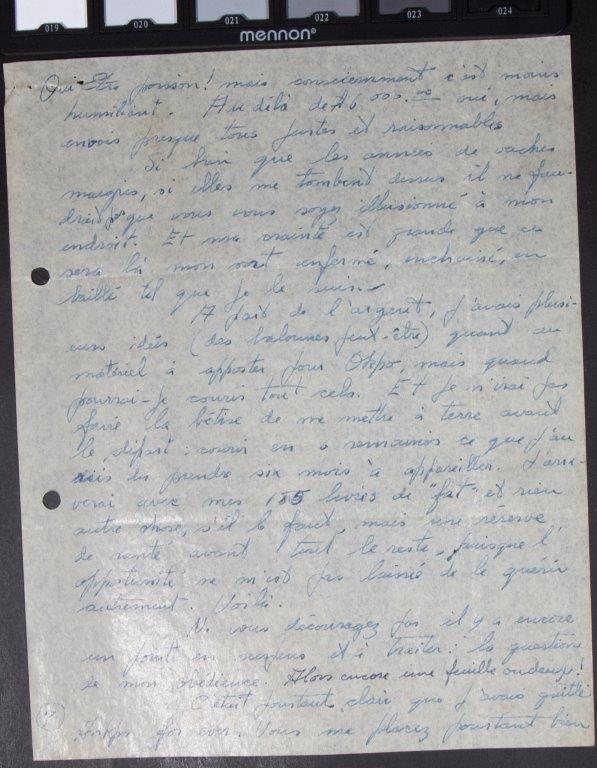 019 020 021 022 023 024
mennon®
Oui Être poisson! mais consciemment c'est moins
humiliant. Au delà de 000.00 oui, mais
envois presque tous justes et raisonnables
Si bien que les années de vaches
maigres, si elles me tombent dessus il ne fau-
drait pas que vous vous soyez illusionné à mon
endroit. Et ma crainte est grande que ce
sera là mon sort enfermé, enchaîné, em
baillé tel que je le suis.
À part de l'argent, j'avais plusi-
eurs idées (des balounes peut-être) quant au
matériel à apporter pour mais quand
pourrai-je courir tout cela. Et je n'irai pas
faire la bêtise de me mettre à terre avant
le départ: courir en 2 semaines ce que j'au
rais dû prendre six mois à appareiller. J'arri-
verai avec mes 185 livres de "fat" et rien
autre chose, s'il le faut, mais une réserve
de santé avant tout le reste, puisque l'
opportunité ne m'est pas laissé de la quérir
autrement. Voilà.
N. vous découragez pas il y a encore
un point en suspens et à traiter: la question
de mon obédience. Alors encore une feuille ou deux!
C'était pourtant clair que j'avais quitté
for ever. Vous me placez pourtant bien